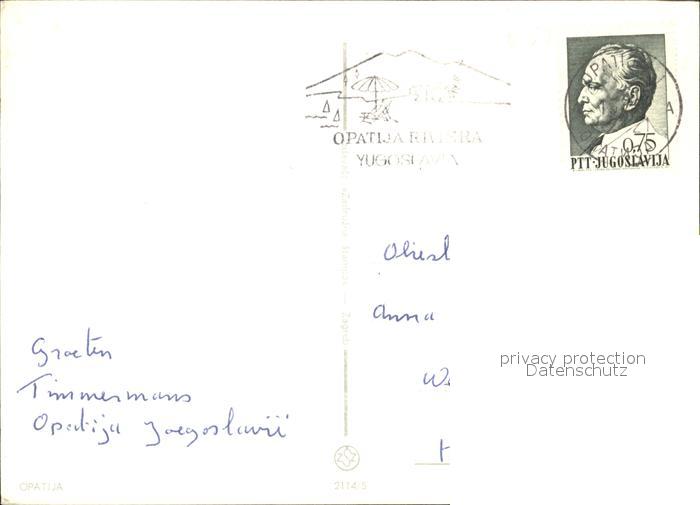 OPATIJA RIVIERA
YUGOSLAVIA
OPATIJA
0,75
PTT·JUGOSLAVIJA
Zagreb
Anna
privacy protection
Datenschutz
Groeten
Timmermans
Opatija Joegoslavië
OPATIJA
2114/5